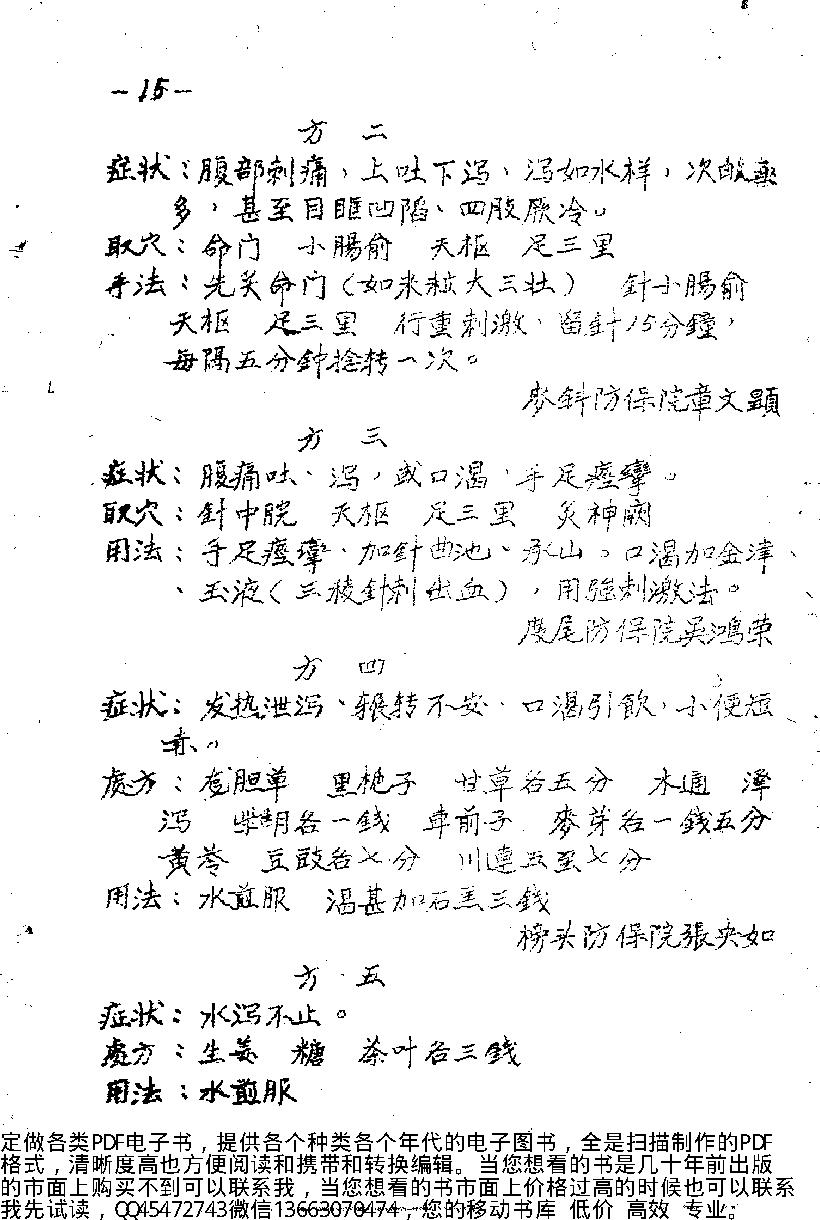 -15-
方 二
症状：腹部刺痛，上吐下泻、泻如水样，次数
多，甚至目眶凹陷、四肢厥冷。
取穴：命门 小腸俞 天枢 足三里
手法：先灸命门（如米粒大三壮） 針小腸俞
天枢 足三里 行重刺激、留針15分鐘，
每隔五分钟捻转一次。
麥斜防保院章文顕
方 三
症状：腹痛吐、泻，或口渴、手足痙攣。
取穴：針中脘 天枢 足三里 灸神阙
用法：手足痙攣、加針曲池、承山。口渴加金津、
、玉液（三稜針刺出血），用強刺激法。
度尾防保院吴鴻荣
方 四
症状：发热泄泻、辗转不安、口渴引飲，小便短
赤。
處方：胆草 黑栀子 甘草各五分 木通 澤
泻 柴胡各一錢 車前子 麥芽各一錢五分
黄芩 豆豉各七分 川連五至七分
用法：水煎服 渴甚加石羔三錢
榜头防保院張央如
方 五
症状：水泻不止。
處方：生姜 糖 茶叶各三錢
用法：水煎服
定做各类PDF电子书，提供各个种类各个年代的电子图书，全是扫描制作的PDF
格式，清晰度高也方便阅读和携带和转换编辑。当您想看的书是几十年前出版
的市面上购买不到可以联系我，当您想看的书市面上价格过高的时候也可以联系
我先试读，QQ45472743微信13663070474，您的移动书库 低价 高效 专业。